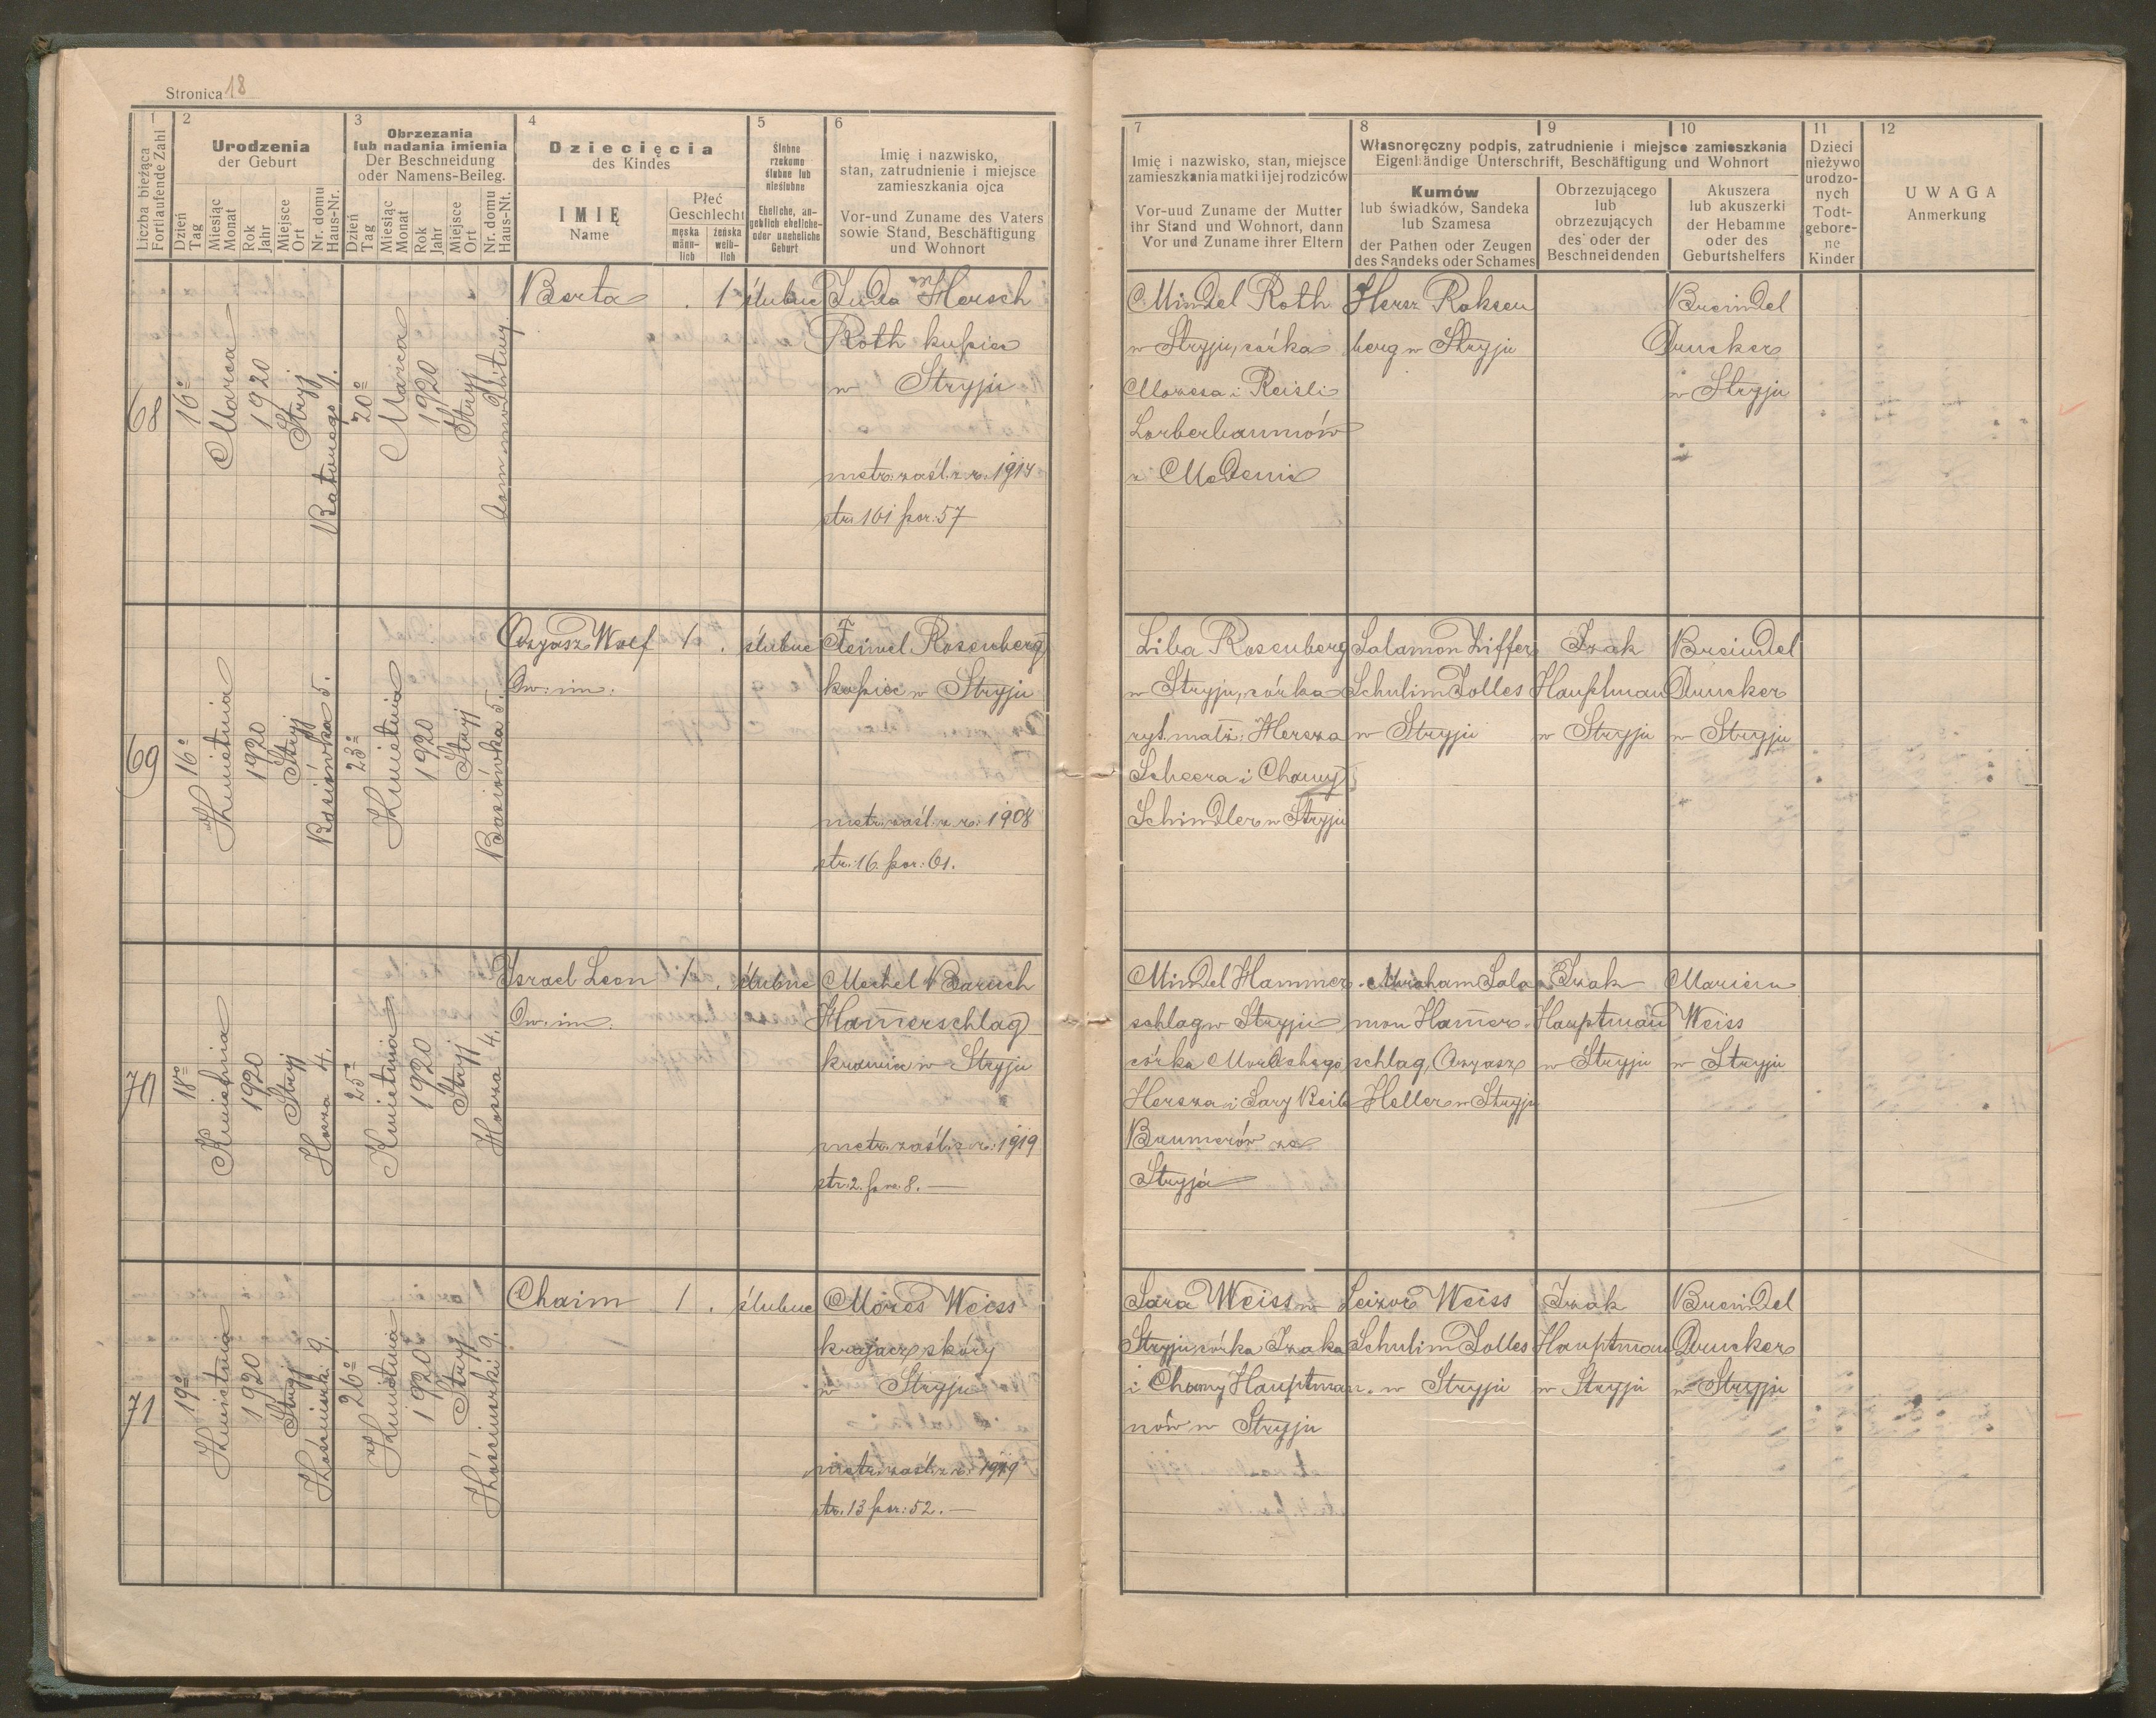 Stronica 18
1
2
Liczba bieżąca
Fortlaufende Zahl
Urodzenia
der Geburt
Dzień
Tag
Miesiąc
Monat
Rok
Jahr
Miejsce
Ort
Nr. domu
Haus-Nr.
3
Obrzezania
lub nadania imienia
Der Beschneidung
oder Namens-Beileg.
Dzień
Tag
Miesiąc
Monat
Rok
Jahr
Miejsce
Ort
Nr. domu
Haus-Nt.
4
Dziecięcia
des Kindes
IMIĘ
Name
Płeć
Geschlecht
męska
männ-
lich
żeńska
weib-
lich
5
Ślubne
rzekomo
ślubne lub
nieślubne
Eheliche, an-
geblich eheliche-
oder uneheliche
Geburt
6
Imię i nazwisko,
stan, zatrudnienie i miejsce
zamieszkania ojca
Vor-und Zuname des Vaters
sowie Stand, Beschäftigung
und Wohnort
7
Imię i nazwisko, stan, miejsce
zamieszkania matki i jej rodziców
Vor-uud Zuname der Mutter
ihr Stand und Wohnort, dann
Vor und Zuname ihrer Eltern
8
9
10
Własnoręczny podpis, zatrudnienie i miejsce zamieszkania
Eigenhändige Unterschrift, Beschäftigung und Wohnort
Kumów
lub świadków, Sandeka
lub Szamesa
der Pathen oder Zeugen
des Sandeks oder Schames
Obrzezującego
lub
obrzezujących
des oder der
Beschneidenden
Akuszera
lub akuszerki
der Hebamme
oder des
Geburtshelfers
11
Dzieci
nieżywo
urodzo-
nych
Todt-
gebore-
ne
Kinder
12
UWAGA
Anmerkung
68
16º
Marca
1920
Stryj
Batorego
20º
Marca
1920
Stryj
dom modlitwy
Berta . 1 ślubne
Juda Hersch
Roth kupiec
w Stryju
metr. zaśl. z r. 1914
str. 101 poz: 57
Mindel Roth
w Stryju, córka
Mozesa i Reisli
Lorberbaumów
Hersz Roksen
berg w Stryju
Breindel
Drucker
w Stryju
69
16º
Kwietnia
1920
Stryj
Basiówka 5.
23º
Kwietnia
1920
Stryj
Basiówka 5.
Ozyasz Wolf 1 . ślubne
Dw: im:
Feiwel Rosenberg
kupiec w Stryju
metr. zaśl. z r. 1908
str. 16 poz: 61.
Liba Rosenberg
w Stryju, córka
ryt. małż: Hersza
Scheera i Chany
Schindler w Stryju
Salamon Liffer
Schulim Jolles
w Stryju
Izak
Hauptman
w Stryju
Breindel
Drucker
w Stryju
70
18º
Kwietnia
1920
Stryj
4.
25º
Kwietnia
1920
Stryj
4.
Israel Leon 1 . ślubne
Dw. im.
Mechel Baruch
Ham̄erschlag
kramia w Stryju
metr. zaśl. z r. 1919
str. 2. poz. 8. —
Mindel Hammer
schlag w Stryju
córka Mordchego
Hersza i Sary Beile
Baumerów ze
Stryja
Abraham Sala
mon Ham̄er-
schlag, Ozyasz
Heller w Stryju
Izak
Hauptman
w Stryju
Mariem
Weiss
w Stryju
71
19º
Kwietnia
1920
Stryj
Kościuszki 9.
26º
Kwietnia
1920
Stryj
Kościuszki 9.
Chaim 1 . ślubne
Mozes Weiss
krajacz skóry
w Stryju
metr. zaśl. z r. 1919
str. 13 poz: 52. —
Sara Weiss w
Stryju, córka Izaka
i Chany Hauptma-
nów w Stryju
Leizor Weiss
Schulim Jolles
w Stryju
Izak
Hauptman
w Stryju
Breindel
Drucker
w Stryju